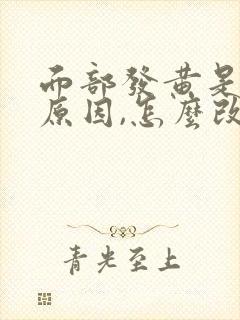 面部發黃是
原因,怎麼改
青光至上